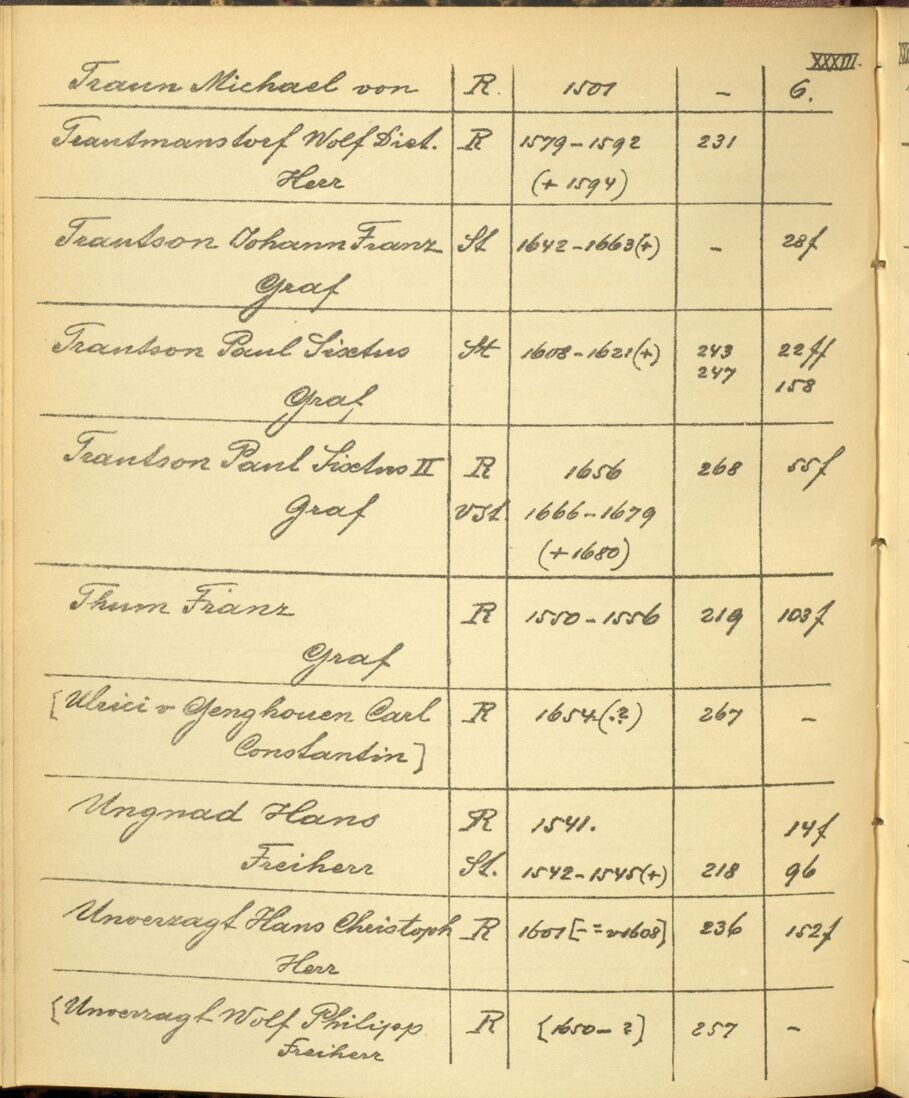 XXXIII.
Traun Michael von R. 1501 – 6.
Trautmanstorf Wolf Diet. R 1579 – 1592 231
Herr (+ 1594)
Trautson Johann Franz St 1642 – 1663(+) – 28f
Graf
Trautson Paul Sixtus St 1608 – 1621(+) 243 22ff
247 158
Graf
Trautson Paul Sixtus II R 1656 268 55f
Graf vSt. 1666 – 1679
(+ 1680)
Thurn Franz R 1550 – 1556 219 103f
Graf
[Ulrici v Genghouen Carl R 1654 (.?) 267 –
Constantin]
Ungnad Hans R 1541. 14f
Freiherr St. 1542 – 1545(+) 218 96
Unverzagt Hans Christoph R 1601 [– = v1608] 236 152f
Herr
[Unverzagt Wolf Philipp R [1650 – ?] 257 –
Freiherr